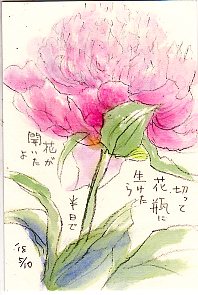 切って
花瓶に
生けたら
半日で
花が
開いたよ
'18
5/10